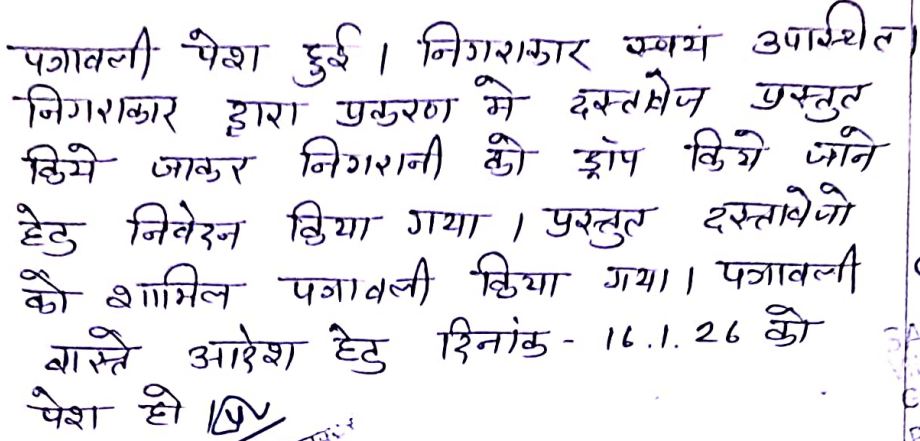 पत्रावली पेश हुई । निगराकार स्वयं उपस्थित।
निगराकार द्वारा प्रकरण मे दस्तावेज प्रस्तुत
किये जाकर निगरानी को ड्रॉप किये जाने
हेतु निवेदन किया गया । प्रस्तुत दस्तावेजो
को शामिल पत्रावली किया गया। पत्रावली
वास्ते आदेश हेतु दिनांक - 16.1.26 को
पेश हो ।